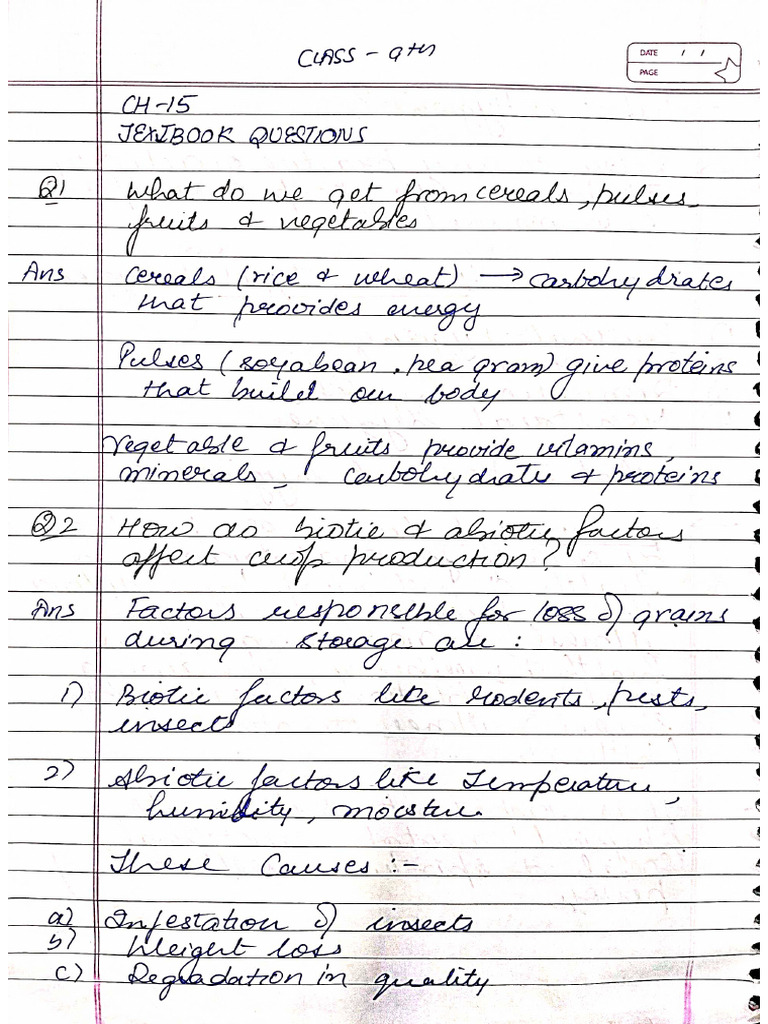 CLASS - 9th
DATE / /
PAGE
CH-15
TEXTBOOK QUESTIONS
Q1 What do we get from cereals, pulses,
fruits & vegetables
Ans Cereals (rice & wheat) → carbohydrates
that provides energy
Pulses (soyabean, pea gram) give proteins
that build our body
Vegetable & fruits provide vitamins,
minerals, carbohydrate & proteins
Q2 How do biotic & abiotic factors
affect crop production?
Ans Factors responsible for loss of grains
during storage are:
1) Biotic factors like rodents, pests,
insects
2) Abiotic factors like Temperature,
humidity, moisture.
These Causes :-
a) Infestation of insects
b) Weight loss
c) Degradation in quality